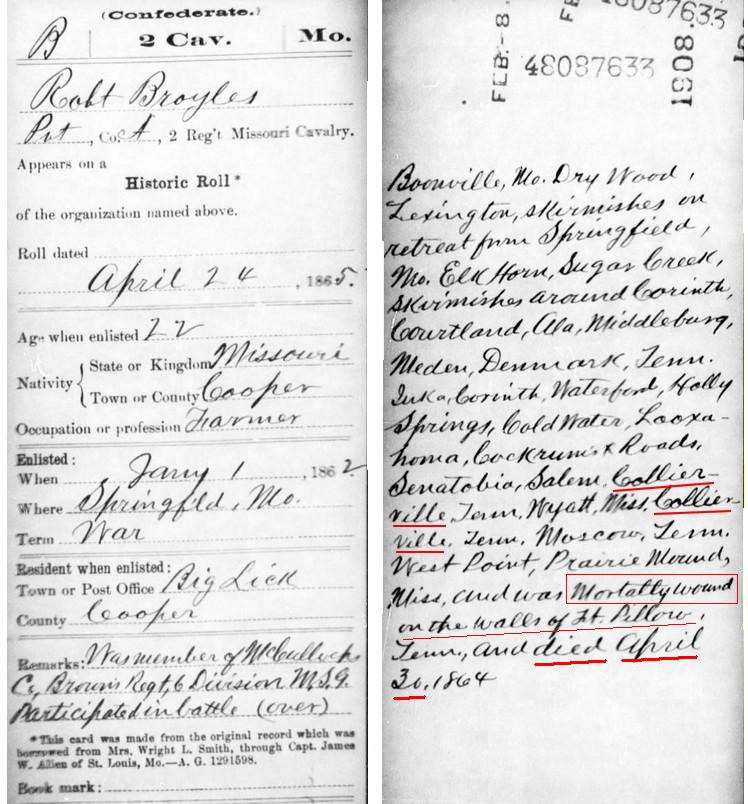 (Confederate.)
B | 2 Cav. | Mo.
Robt Broyles
Pvt, Co. A, 2 Reg't Missouri Cavalry.
Appears on a
Historic Roll*
of the organization named above.
Roll dated
April 24, 1865.
Age when enlisted 22
Nativity { State or Kingdom Missouri
Town or County Cooper
Occupation or profession Farmer
Enlisted:
When Jany 1, 1862
Where Springfld, Mo.
Term War
Resident when enlisted:
Town or Post Office Big Lick
County Cooper
Remarks: Was member of McCullochs
Co, Browns Regt, 6 Division M.S.G.
Participated in battle (over)
*This card was made from the original record which was
borrowed from Mrs. Wright L. Smith, through Capt. James
W. Allen of St. Louis, Mo.—A. G. 1291598.
Book mark:
FEB.-8.
48087633
1908.
48087633
Boonville, Mo. Dry Wood,
Lexington, skirmishes on
retreat from Springfield,
Mo. Elk Horn, Sugar Creek,
skirmishes around Corinth,
Courtland, Ala, Middleburg,
Meden, Denmark, Tenn.
Iuka, Corinth, Waterford, Holly
Springs, Cold Water, Looxa-
homa, Cockrums X Roads,
Senatobia, Salem, Collier-
ville Tenn, Wyatt, Miss, Collier-
ville, Tenn, Moscow, Tenn.
West Point, Prairie Mound,
Miss, and was Mortally wound
on the walls of Ft. Pillow,
Tenn, and died April
30, 1864